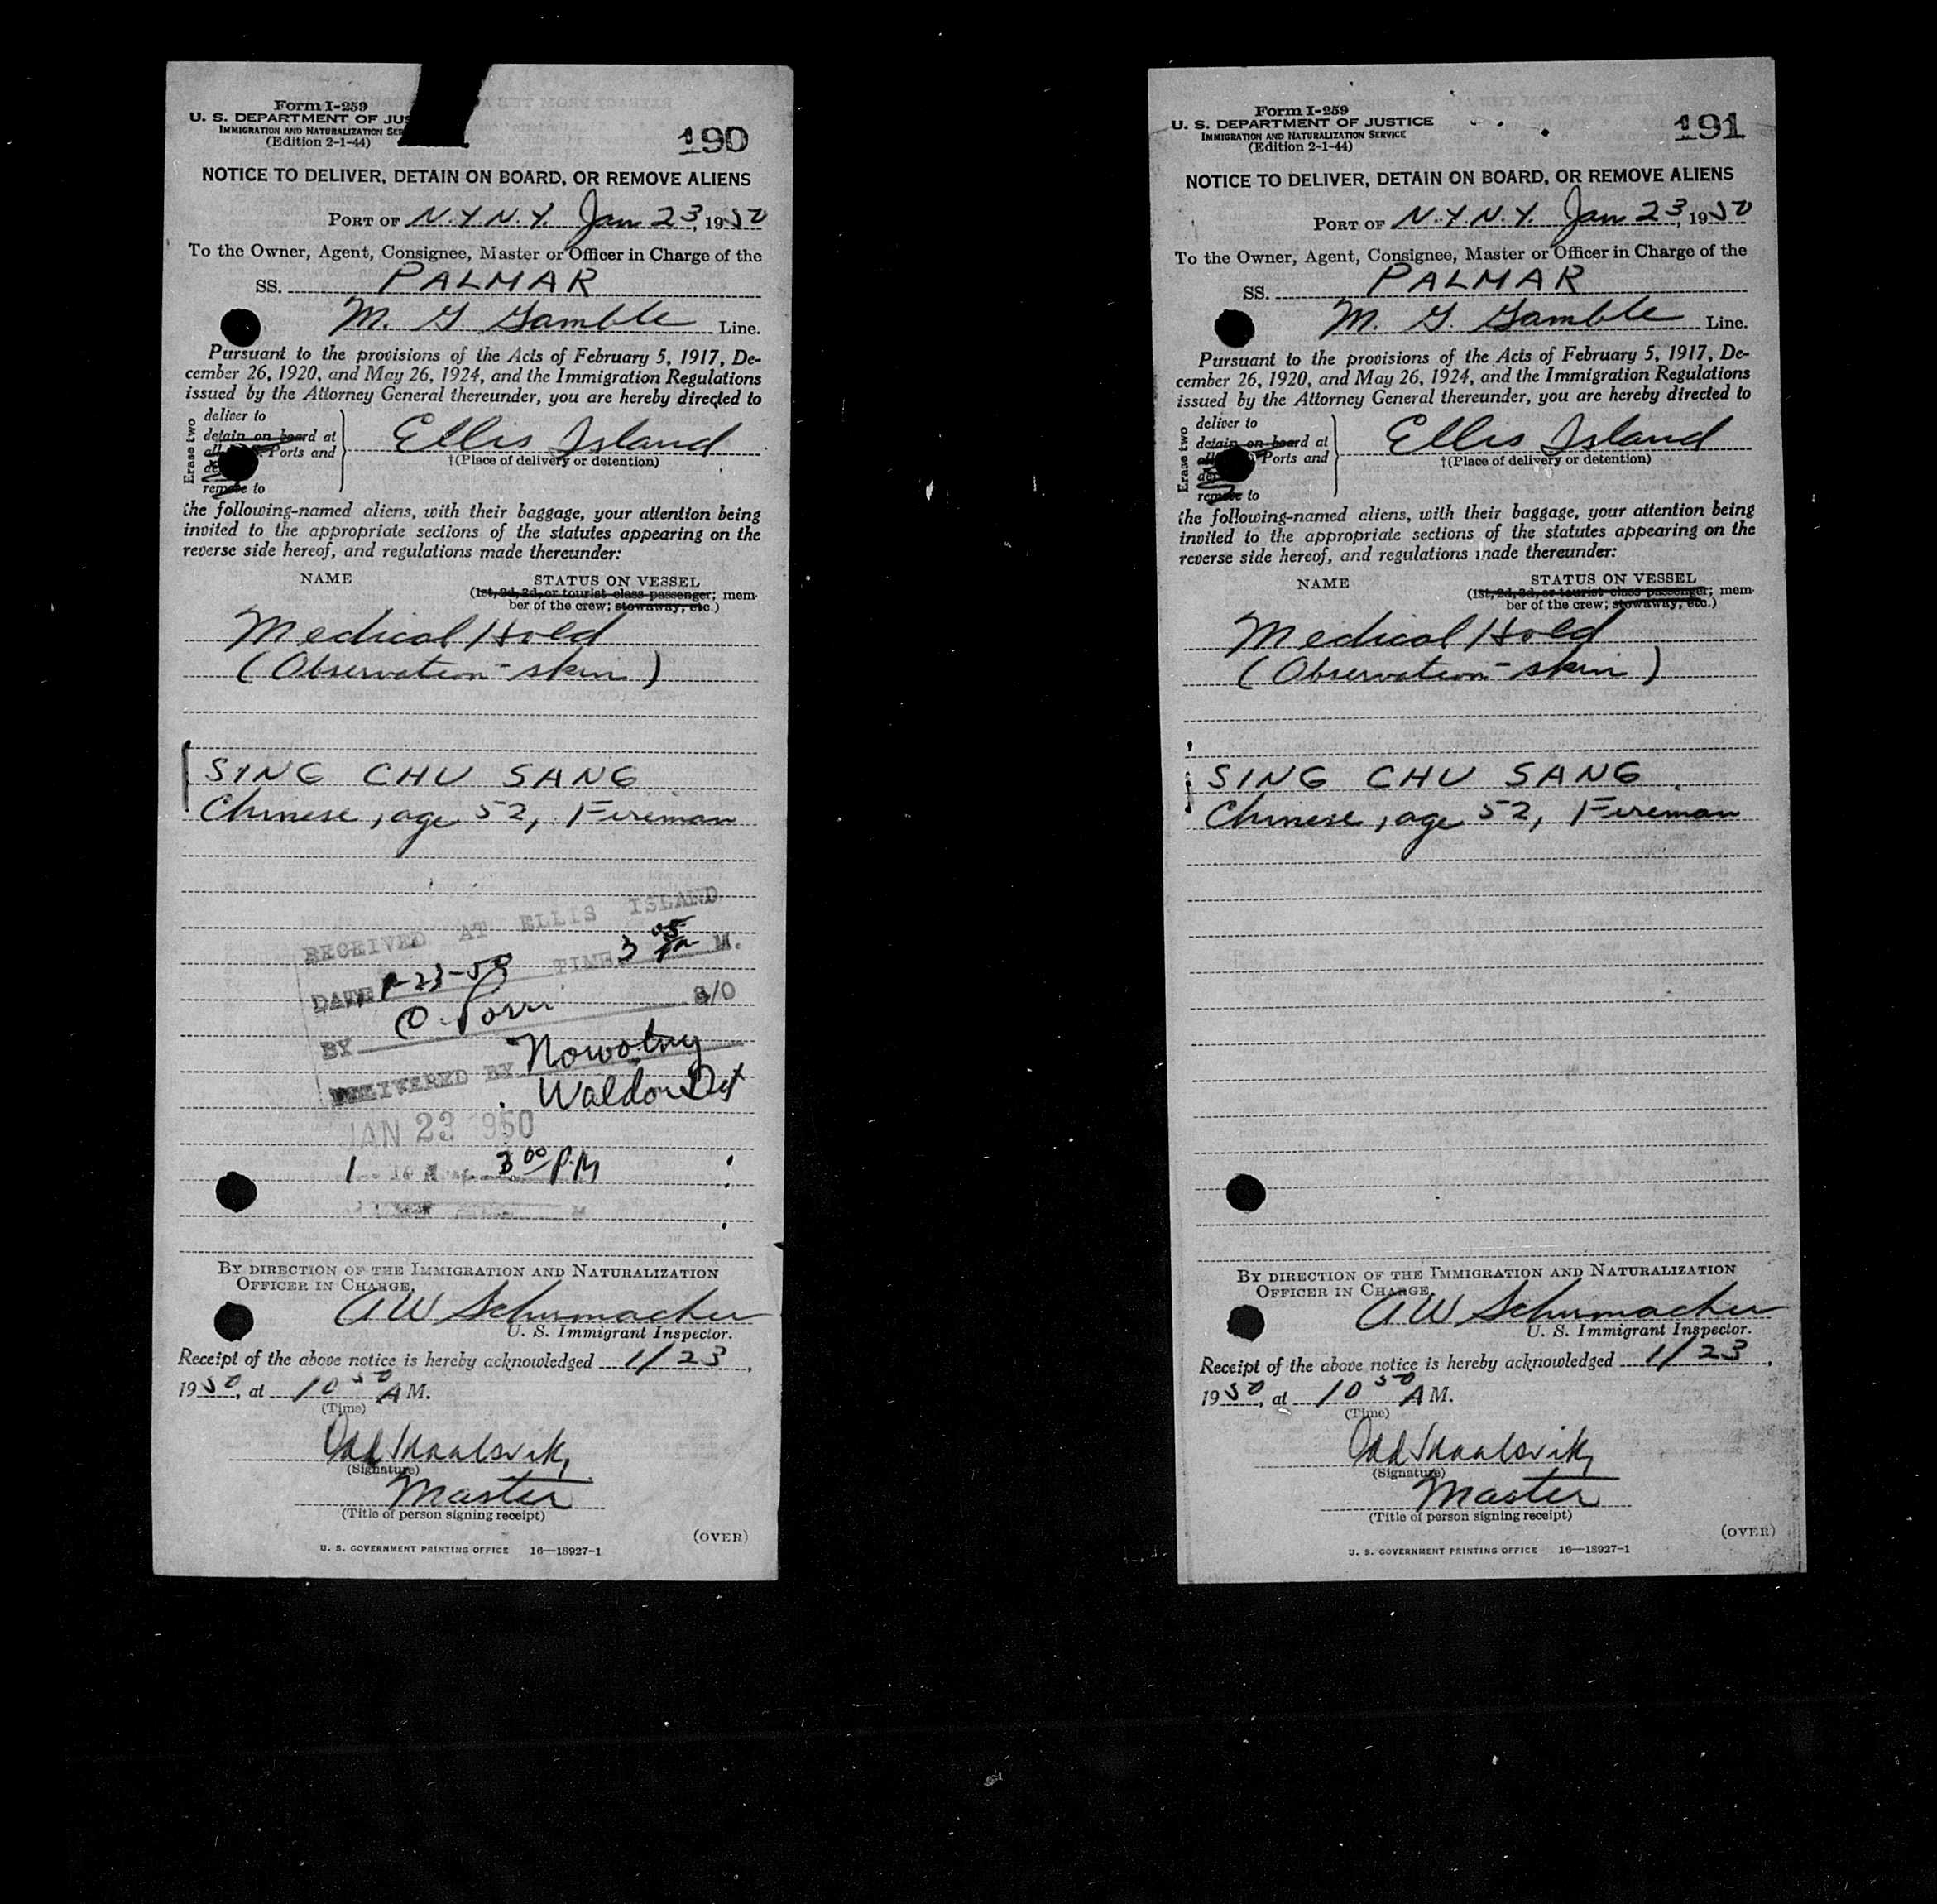 Form I-259
U. S. DEPARTMENT OF JUS
IMMIGRATION AND NATURALIZATION SER
(Edition 2-1-44)
190
NOTICE TO DELIVER, DETAIN ON BOARD, OR REMOVE ALIENS
PORT OF N.Y.N.Y. Jan 23, 1950
To the Owner, Agent, Consignee, Master or Officer in Charge of the
SS. PALMAR
M. G Gamble Line.
Pursuant to the provisions of the Acts of February 5, 1917, De-
cember 26, 1920, and May 26, 1924, and the Immigration Regulations
issued by the Attorney General thereunder, you are hereby directed to
Erase two
deliver to
detain on board at
Ports and
remove to
Ellis Island
†(Place of delivery or detention)
the following-named aliens, with their baggage, your attention being
invited to the appropriate sections of the statutes appearing on the
reverse side hereof, and regulations made thereunder:
NAME
STATUS ON VESSEL
(1st, 2d, 3d, or tourist class passenger; mem-
ber of the crew; stowaway, etc.)
Medical Hold
(Observation - skin)
SING CHU SANG
Chinese, age 52, Fireman
RECEIVED AT ELLIS ISLAND
DATE 1-23-50 TIME 3 05 M.
BY
DELIVERED BY Nowotny
Waldon Det
JAN 23 1950
1 3 00 P.M
BY DIRECTION OF THE IMMIGRATION AND NATURALIZATION
OFFICER IN CHARGE,
A W Schumacher
U. S. Immigrant Inspector.
Receipt of the above notice is hereby acknowledged 1/23,
1950, at 10 50 A M.
(Time)
(Signature)
Master
(Title of person signing receipt)
(OVER)
U. S. GOVERNMENT PRINTING OFFICE 16—18927-1
Form I-259
U. S. DEPARTMENT OF JUSTICE
IMMIGRATION AND NATURALIZATION SERVICE
(Edition 2-1-44)
191
NOTICE TO DELIVER, DETAIN ON BOARD, OR REMOVE ALIENS
PORT OF N.Y.N.Y. Jan 23, 1950
To the Owner, Agent, Consignee, Master or Officer in Charge of the
SS. PALMAR
M. G. Gamble Line.
Pursuant to the provisions of the Acts of February 5, 1917, De-
cember 26, 1920, and May 26, 1924, and the Immigration Regulations
issued by the Attorney General thereunder, you are hereby directed to
Erase two
deliver to
detain on board at
Ports and
remove to
Ellis Island
†(Place of delivery or detention)
the following-named aliens, with their baggage, your attention being
invited to the appropriate sections of the statutes appearing on the
reverse side hereof, and regulations made thereunder:
NAME
STATUS ON VESSEL
(1st, 2d, 3d, or tourist class passenger; mem-
ber of the crew; stowaway, etc.)
Medical Hold
(Observation - skin)
SING CHU SANG
Chinese, age 52, Fireman
BY DIRECTION OF THE IMMIGRATION AND NATURALIZATION
OFFICER IN CHARGE,
A W Schumacher
U. S. Immigrant Inspector.
Receipt of the above notice is hereby acknowledged 1/23,
1950, at 10 50 A M.
(Time)
(Signature)
Master
(Title of person signing receipt)
(OVER)
U. S. GOVERNMENT PRINTING OFFICE 16—18927-1